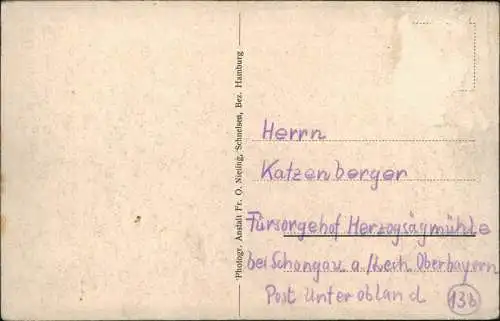 Photogr. Anstalt Fr. O. Nieting, Schnelsen, Bez. Hamburg
Herrn
Katzenberger
Fürsorgehof Herzogsägmühle
bei Schongau a/Lech Oberbayern
Post Unterobland
13b